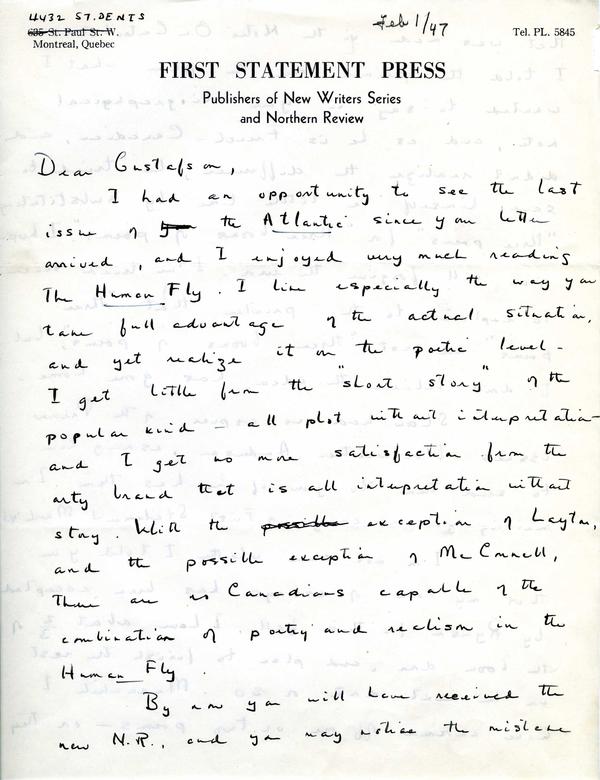 4432 ST. DENIS
635 St. Paul St. W.
Montreal, Quebec
Feb 1/47
Tel. PL. 5845
FIRST STATEMENT PRESS
Publishers of New Writers Series
and Northern Review
Dear Gustafson,
I had an opportunity to see the last
issue of the Atlantic since your letter
arrived, and I enjoyed very much reading
The Human Fly. I like especially the way you
take full advantage of the actual situation,
and yet realize it on the poetic level -
I get little from the "short story" of the
popular kind - all plot without interpretation
and I get no more satisfaction from the
arty brand that is all interpretation without
story. With the possible exception of Layton,
and the possible exception of McConnell,
There are no Canadians capable of the
combination of poetry and realism in the
Human Fly.
By now you will have received the
new N.R., and you may notice the mistake